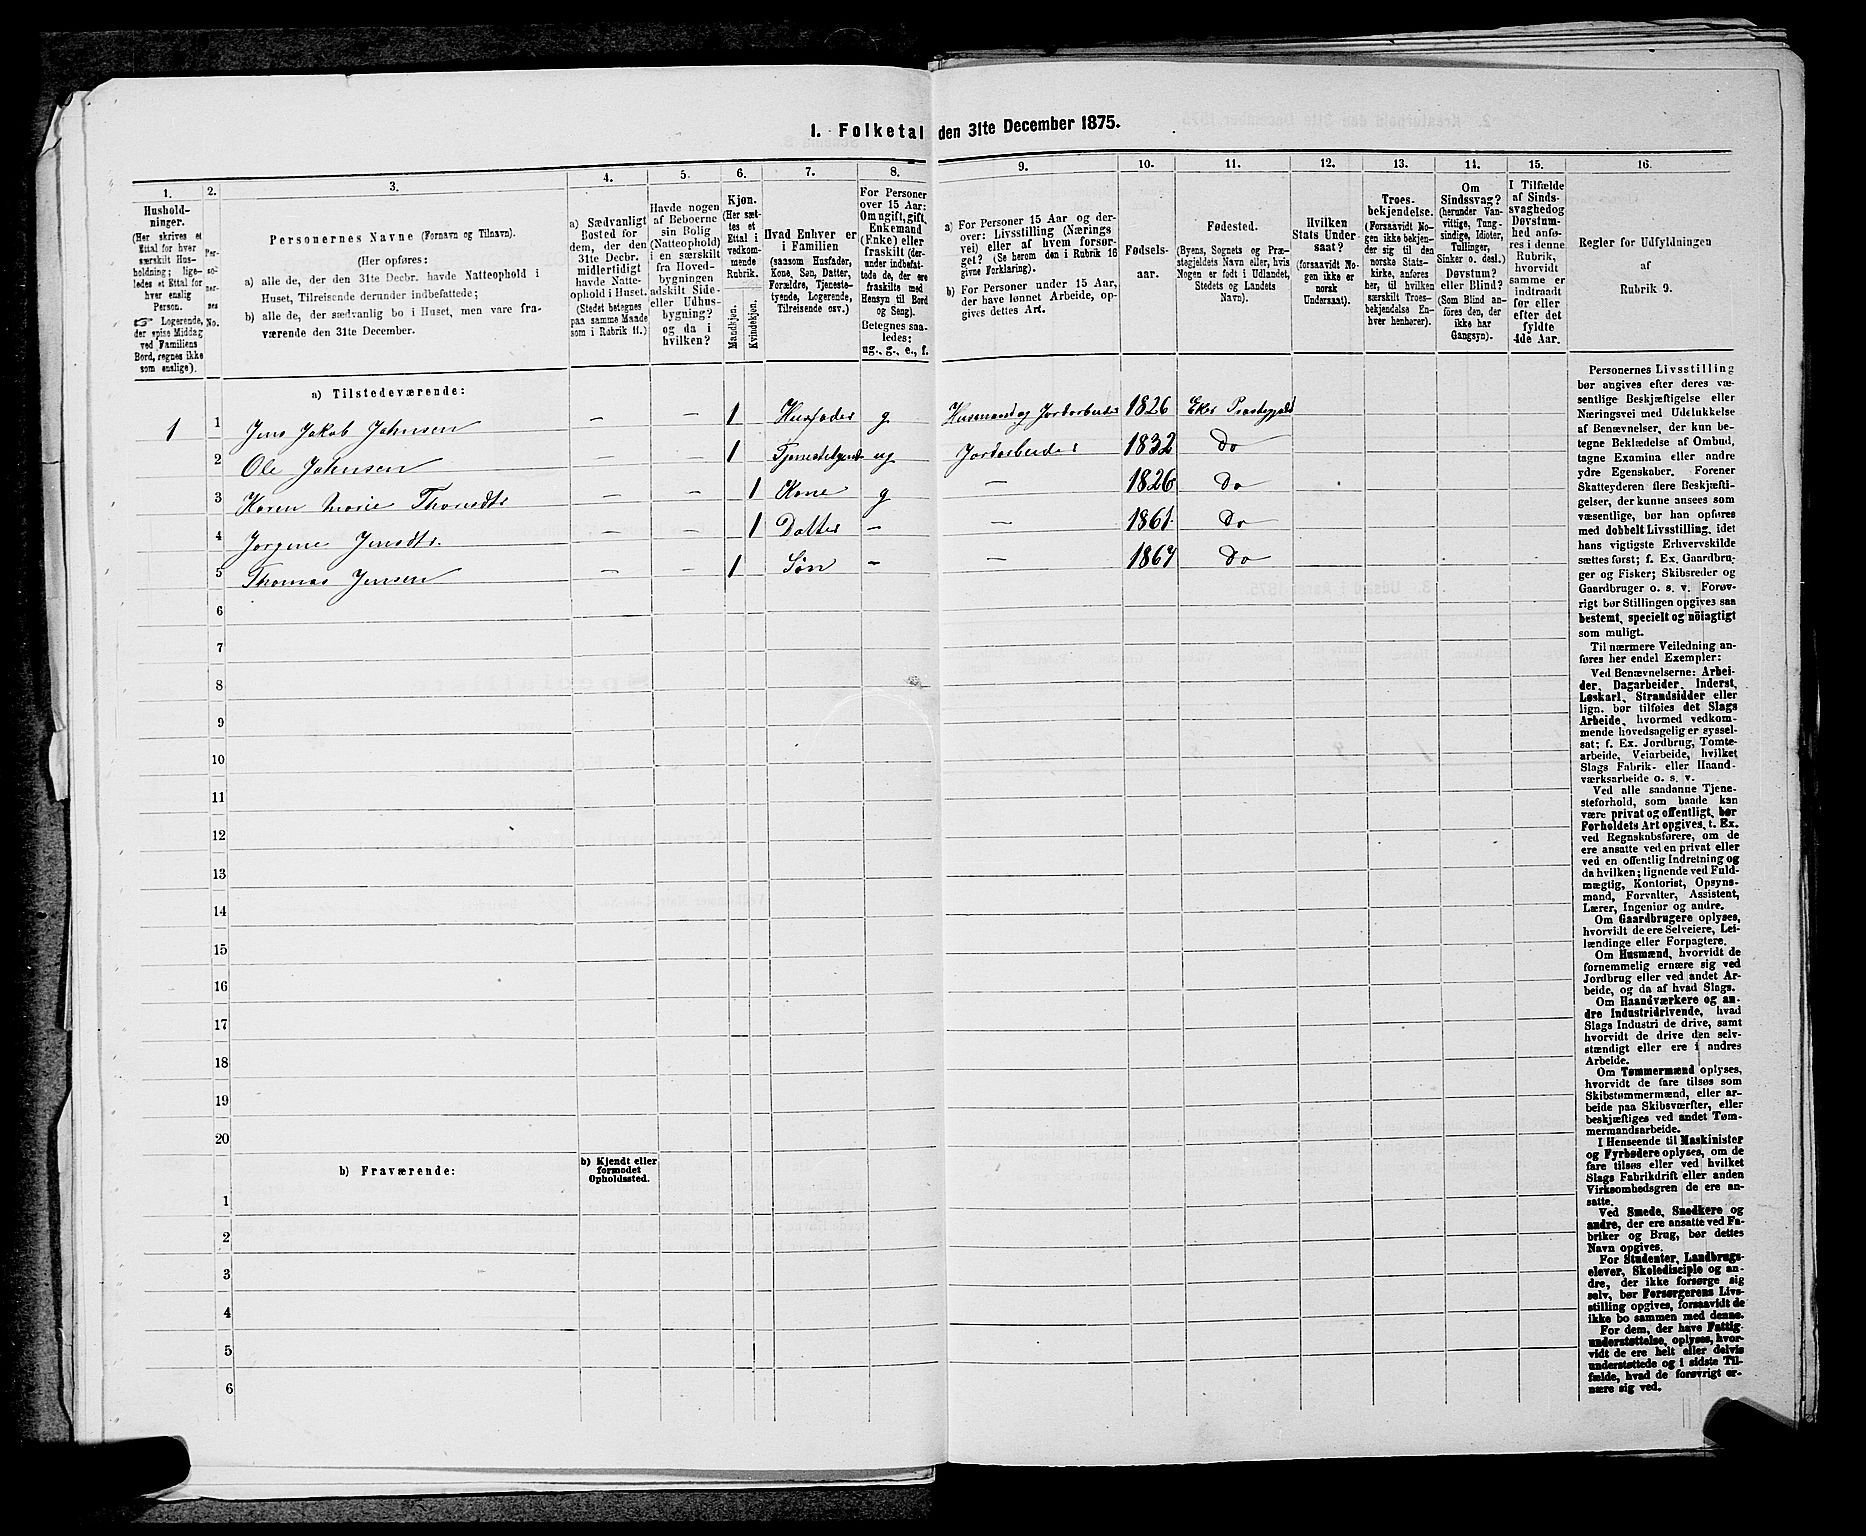 1. Folketal den 31te December 1875.
1.
2.
3.
4.
5.
6.
7.
8.
9.
10.
11.
12.
13.
14.
15.
16.
Hushold-
ninger.
(Her skrives et
Ettal for hver
særskilt Hus-
holdning; lige-
ledes et Ettal for
hver enslig
Person.
☞ Logerende,
der spise Middag
ved Familiens
Bord, regnes ikke
som enslige).
Per-
so-
ner-
nes
No.
Personernes Navne (Fornavn og Tilnavn).
(Her opføres:
a) alle de, der den 31te Decbr. havde Natteophold i
Huset, Tilreisende derunder indbefattede;
b) alle de, der sædvanlig bo i Huset, men vare fra-
værende den 31te December.
a) Sædvanligt
Bosted for
dem, der den
31te Decbr.
midlertidigt
havde Natte-
ophold i Huset.
(Stedet betegnes
paa samme Maade
som i Rubrik 11.)
Havde nogen
af Beboerne
sin Bolig
(Natteophold)
i en særskilt
fra Hoved-
bygningen
adskilt Side-
eller Udhus-
bygning?
og da i
hvilken?
Kjøn.
(Her sæt-
tes et
Ettal i
vedkom-
mende
Rubrik.
Mandkjøn.
Kvindekjøn.
Hvad Enhver er
i Familien
(saasom Husfader,
Kone, Søn, Datter,
Forældre, Tjeneste-
tyende, Logerende,
Tilreisende osv.)
For Personer
over 15 Aar:
Om ugift, gift,
Enkemand
(Enke) eller
fraskilt (der-
under indbefat-
tede de, der ere
fraskilte med
Hensyn til Bord
og Seng).
Betegnes saa-
ledes:
ug., g., e., f.
a) For Personer 15 Aar og der-
over: Livsstilling (Nærings-
vei) eller af hvem forsør-
get? (Se herom den i Rubrik 16
givne Forklaring).
b) For Personer under 15 Aar,
der have lønnet Arbeide, op-
gives dettes Art.
Fødsels-
aar.
Fødested.
(Byens, Sognets og Præ-
stegjeldets Navn eller, hvis
Nogen er født i Udlandet,
Stedets og Landets
Navn).
Hvilken
Stats Under
saat?
(forsaavidt No-
gen ikke er
norsk
Undersaat).
Troes-
bekjendelse.
(Forsaavidt No-
gen ikke bekjen-
der sig til den
norske Stats-
kirke, anføres
her, til hvilken
særskilt Troes-
bekjendelse En-
hver henhører).
Om
Sindssvag?
(herunder Van-
vittige, Tung-
sindige, Idioter,
Tullinger,
Sinker o. desl.)
Døvstum?
eller Blind?
(Som Blind an-
føres den, der
ikke har
Gangsyn).
I Tilfælde
af Sinds-
svaghed og
Døvstum-
hed anfø-
res i denne
Rubrik,
hvorvidt
samme er
indtraadt
før eller
efter det
fyldte
4de Aar.
Regler for Udfyldningen
af
Rubrik 9.
a) Tilstedeværende:
1 1 Jens Jakob Johnsen – – 1 Husfader g Husmand og Jordarbeider 1826 Eker Præstegjæld
2 Ole Johnsen – – 1 Tjenestetyende ug Jordarbeider 1832 Do
3 Karen Marie Thorsdtr – – 1 Kone g – 1826 Do
4 Jørgine Jensdtr. – – 1 Datter – – 1861 Do
5 Thomas Jensen – – 1 Søn – – 1867 Do
6
7
8
9
10
11
12
13
14
15
16
17
18
19
20
b) Fraværende:
b) Kjendt eller
formodet
Opholdssted.
1
2
3
4
5
6
Personernes Livsstilling
bør angives efter deres væ-
sentlige Beskjæftigelse eller
Næringsvei med Udelukkelse
af Benævnelser, der kun be-
tegne Beklædelse af Ombud,
tagne Examina eller andre
ydre Egenskaber. Forener
Skatteyderen flere Beskjæfti-
gelser, der kunne ansees som
væsentlige, bør han opføres
med dobbelt Livsstilling, idet
hans vigtigste Erhvervskilde
sættes først; f. Ex. Gaardbru-
ger og Fisker; Skibsreder og
Gaardbruger o. s. v. Forøv-
rigt bør Stillingen opgives saa
bestemt, specielt og nöiagtigt
som muligt.
Til nærmere Veiledning an-
føres her endel Exempler:
Ved Benævnelserne: Arbei-
der, Dagarbeider, Inderst,
Løskarl, Strandsidder eller
lign. bør tilføies det Slags
Arbeide, hvormed vedkom-
mende hovedsagelig er syssel-
sat; f. Ex. Jordbrug, Tomte-
arbeide, Veiarbeide, hvilket
Slags Fabrik- eller Haand-
værksarbeide o. s. v.
Ved alle saadanne Tjene-
steforhold, som baade kan
være privat og offentligt, bør
Forholdets Art opgives, t. Ex.
ved Regnskabsførere, om de
ere ansatte ved en privat eller
ved en offentlig Indretning og
da hvilken; lignende ved Fuld-
mægtig, Kontorist, Opsyns-
mand, Forvalter, Assistent,
Lærer, Ingeniør og andre.
Om Gaardbrugere oplyses,
hvorvidt de ere Selveiere, Lei-
lændinge eller Forpagtere.
Om Husmænd, hvorvidt de
fornemmelig ernære sig ved
Jordbrug eller ved andet Ar-
beide, og da af hvad Slags.
Om Haandværkere og an-
dre Industridrivende, hvad
Slags Industri de drive, samt
hvorvidt de drive den selv-
stændigt eller ere i andres
Arbeide.
Om Tømmermænd oplyses,
hvorvidt de fare tilsøs som
Skibstømmermænd, eller ar-
beide paa Skibsværfter, eller
beskjæftiges ved andet Tøm-
mermandsarbeide.
I Henseende til Maskinister
og Fyrbødere oplyses, om de
fare tilsøs eller ved hvilket
Slags Fabrikdrift eller anden
Virksomhedsgren de ere an-
satte.
Ved Smede, Snedkere og
andre, der ere ansatte ved Fa-
briker og Brug, bør dettes
Navn opgives.
For Studenter, Landbrugs-
elever, Skoledisciple og an-
dre, der ikke forsørge sig
selv, bør Forsørgerens Livs-
stilling opgives, forsaavidt de
ikke bo sammen med denne.
For dem, der have Fattig-
understøttelse, oplyses, hvor-
vidt de ere helt eller delvis
understøttede og i sidste Til-
fælde, hvad de forøvrigt er-
nære sig ved.